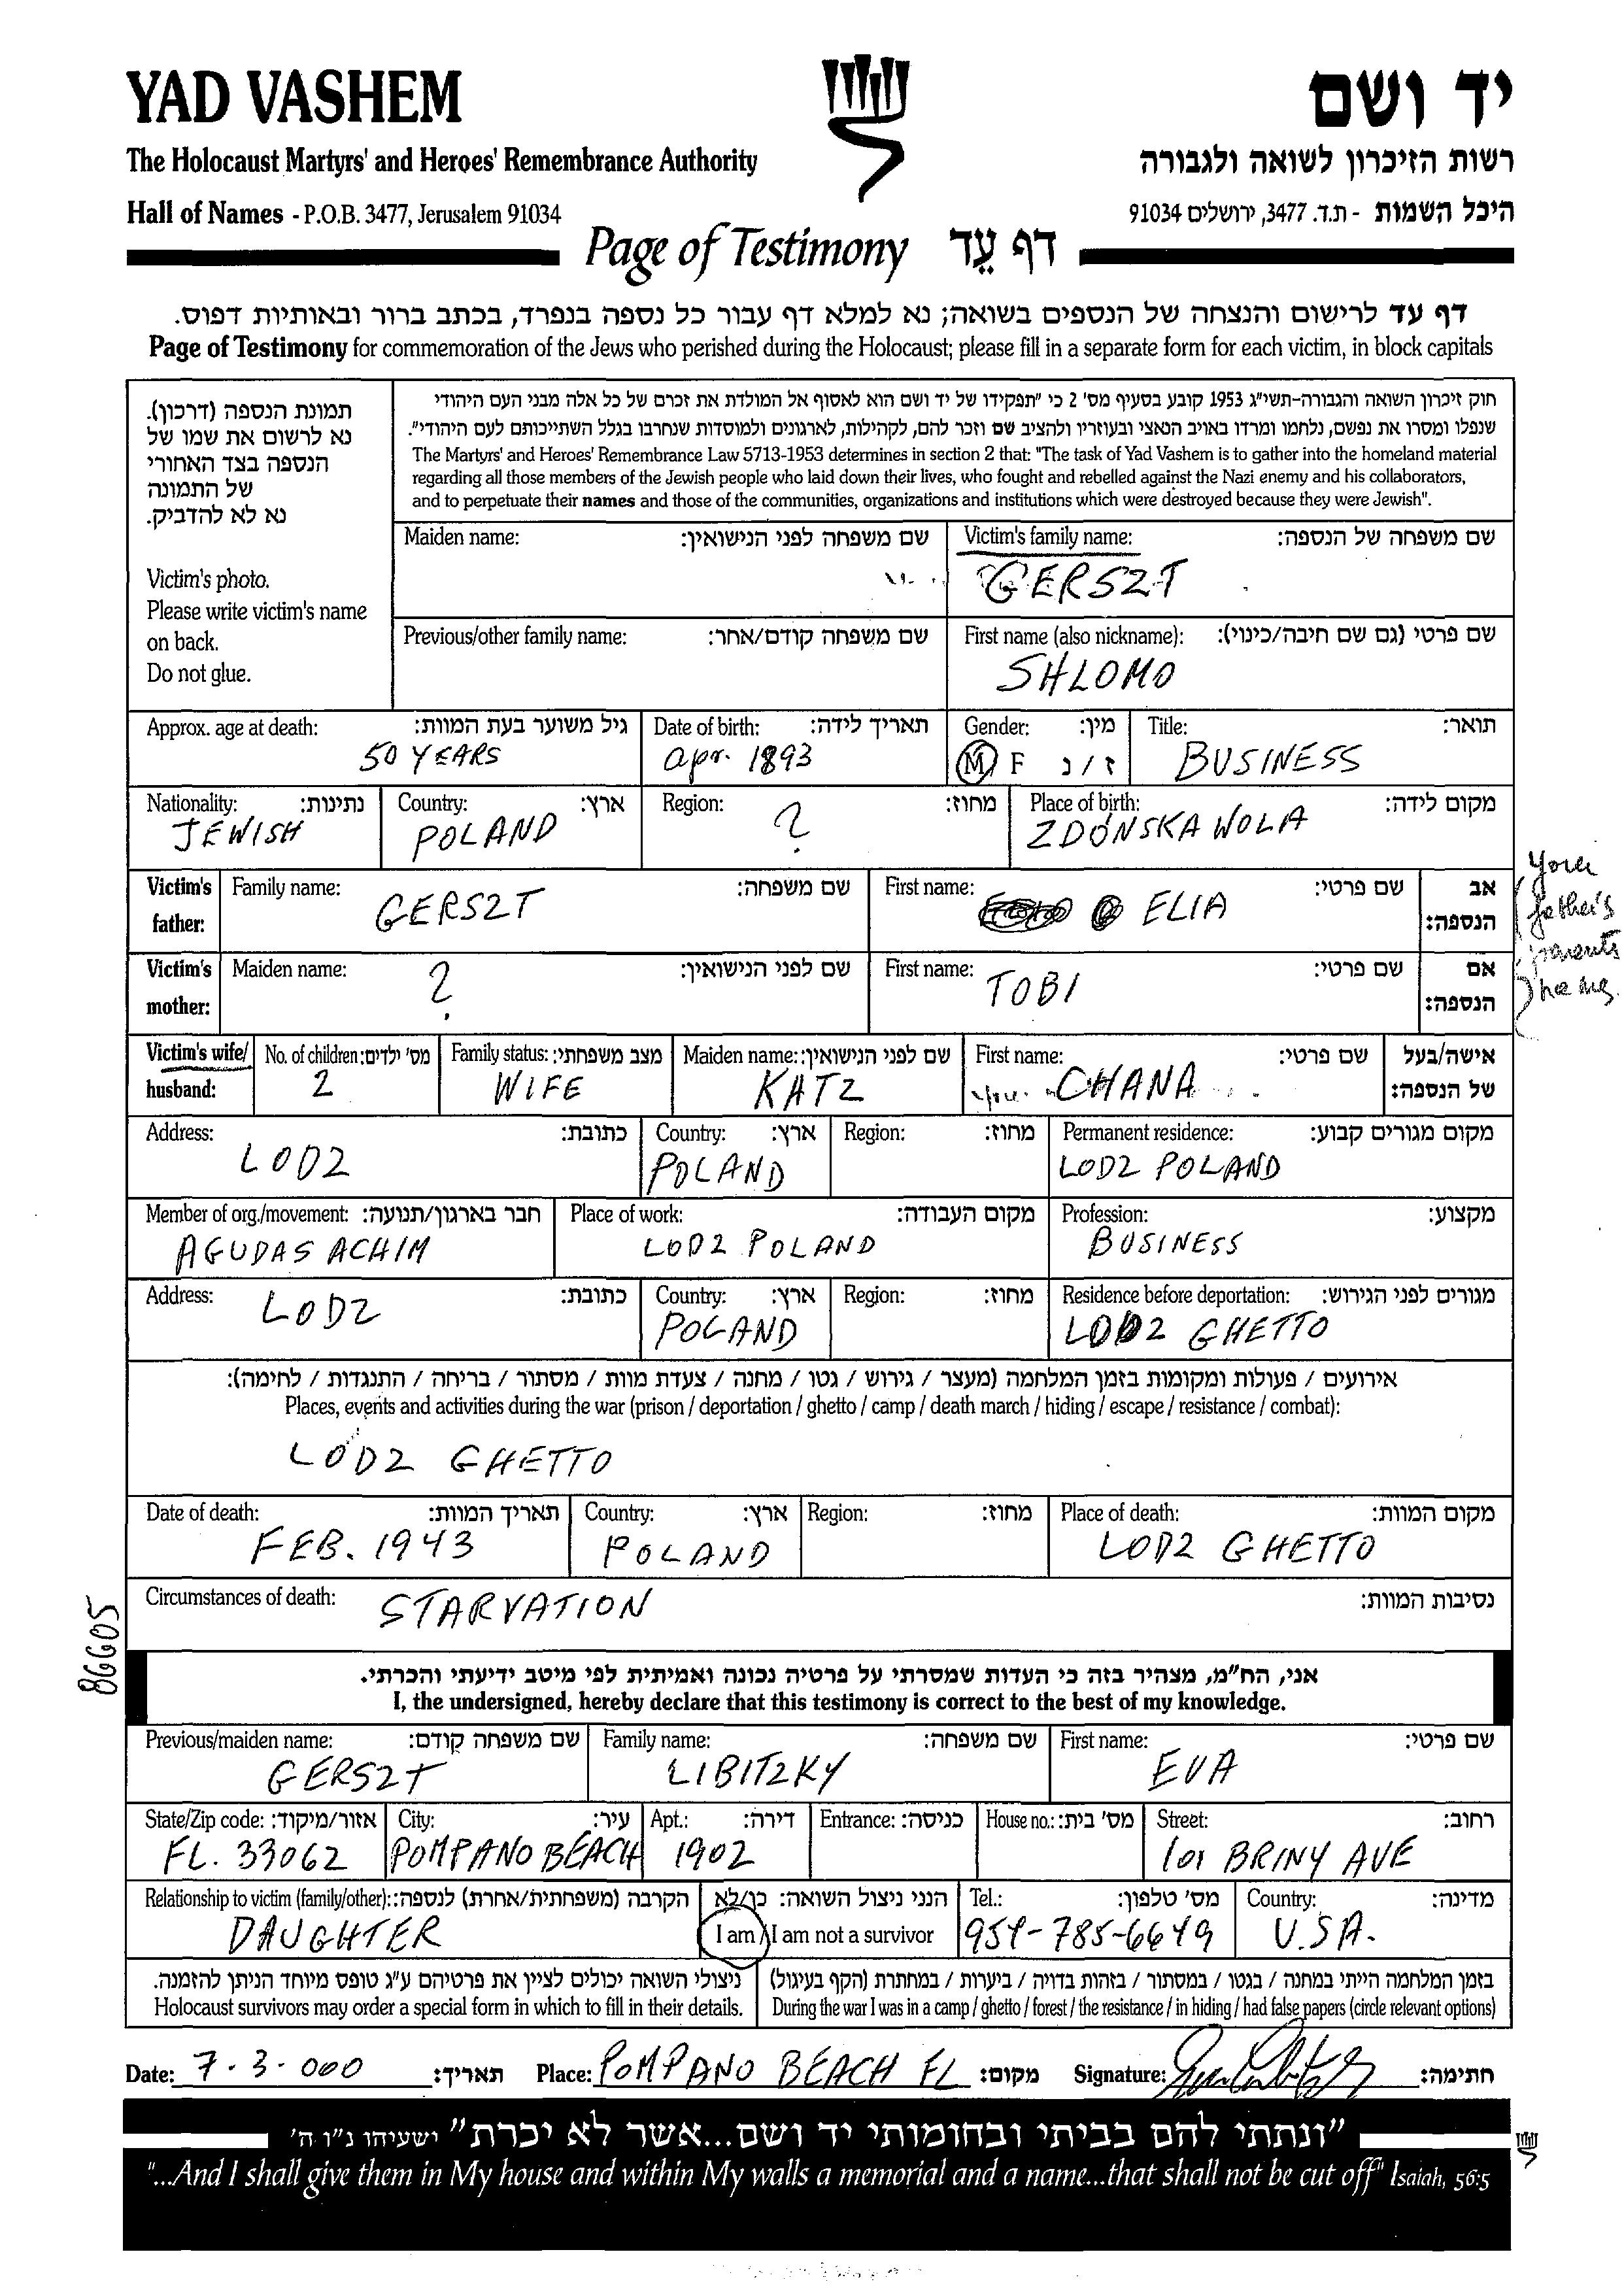 YAD VASHEM
יד ושם
The Holocaust Martyrs' and Heroes' Remembrance Authority
רשות הזיכרון לשואה ולגבורה
Hall of Names - P.O.B. 3477, Jerusalem 91034
היכל השמות - ת.ד. 3477, ירושלים 91034
Page of Testimony דף עֵד
דף עד לרישום והנצחה של הנספים בשואה; נא למלא דף עבור כל נספה בנפרד, בכתב ברור ובאותיות דפוס.
Page of Testimony for commemoration of the Jews who perished during the Holocaust; please fill in a separate form for each victim, in block capitals
תמונת הנספה (דרכון).
נא לרשום את שמו של
הנספה בצד האחורי
של התמונה
נא לא להדביק.
Victim's photo.
Please write victim's name
on back.
Do not glue.
חוק זיכרון השואה והגבורה-תשי"ג 1953 קובע בסעיף מס' 2 כי "תפקידו של יד ושם הוא לאסוף אל המולדת את זכרם של כל אלה מבני העם היהודי
שנפלו ומסרו את נפשם, נלחמו ומרדו באויב הנאצי ובעוזריו ולהציב שם וזכר להם, לקהילות, לארגונים ולמוסדות שנחרבו בגלל השתייכותם לעם היהודי".
The Martyrs' and Heroes' Remembrance Law 5713-1953 determines in section 2 that: "The task of Yad Vashem is to gather into the homeland material
regarding all those members of the Jewish people who laid down their lives, who fought and rebelled against the Nazi enemy and his collaborators,
and to perpetuate their names and those of the communities, organizations and institutions which were destroyed because they were Jewish".
Maiden name: שם משפחה לפני הנישואין:
Victim's family name: שם משפחה של הנספה:
GERSZT
Previous/other family name: שם משפחה קודם/אחר:
First name (also nickname): שם פרטי (גם שם חיבה/כינוי):
SHLOMO
Approx. age at death: גיל משוער בעת המוות:
50 YEARS
Date of birth: תאריך לידה:
apr. 1893
Gender: מין:
M F ז / נ
Title: תואר:
BUSINESS
Nationality: נתינות:
JEWISH
Country: ארץ:
POLAND
Region: מחוז:
?
Place of birth: מקום לידה:
ZDONSKA WOLA
Victim's father: Family name: שם משפחה:
GERSZT
First name: שם פרטי:
ELIA
אב הנספה:
Your
father's
parents
names
Victim's mother: Maiden name: שם לפני הנישואין:
?
First name: שם פרטי:
TOBI
אם הנספה:
Victim's wife/ husband:
No. of children: מס' ילדים:
2
Family status: מצב משפחתי:
WIFE
Maiden name: שם לפני הנישואין:
KATZ
First name: שם פרטי:
CHANA
אישה/בעל של הנספה:
Address: כתובת:
LODZ
Country: ארץ:
POLAND
Region: מחוז:
Permanent residence: מקום מגורים קבוע:
LODZ POLAND
Member of org./movement: חבר בארגון/תנועה:
AGUDAS ACHIM
Place of work: מקום העבודה:
LODZ POLAND
Profession: מקצוע:
BUSINESS
Address: כתובת:
LODZ
Country: ארץ:
POLAND
Region: מחוז:
Residence before deportation: מגורים לפני הגירוש:
LODZ GHETTO
אירועים / פעולות ומקומות בזמן המלחמה (מעצר / גירוש / גטו / מחנה / צעדת מוות / מסתור / בריחה / התנגדות / לחימה):
Places, events and activities during the war (prison / deportation / ghetto / camp / death march / hiding / escape / resistance / combat):
LODZ GHETTO
Date of death: תאריך המוות:
FEB. 1943
Country: ארץ:
POLAND
Region: מחוז:
Place of death: מקום המוות:
LODZ GHETTO
Circumstances of death: נסיבות המוות:
STARVATION
86605
אני, הח"מ, מצהיר בזה כי העדות שמסרתי על פרטיה נכונה ואמיתית לפי מיטב ידיעתי והכרתי.
I, the undersigned, hereby declare that this testimony is correct to the best of my knowledge.
Previous/maiden name: שם משפחה קודם:
GERSZT
Family name: שם משפחה:
LIBITZKY
First name: שם פרטי:
EVA
State/Zip code: אזור/מיקוד:
FL. 33062
City: עיר:
POMPANO BEACH
Apt.: דירה:
1902
Entrance: כניסה:
House no.: מס' בית:
Street: רחוב:
101 BRINY AVE
Relationship to victim (family/other): הקרבה (משפחתית/אחרת) לנספה:
DAUGHTER
הנני ניצול השואה: כן/לא
I am / I am not a survivor
Tel.: מס' טלפון:
954-785-6649
Country: מדינה:
U.SA.
ניצולי השואה יכולים לציין את פרטיהם ע"ג טופס מיוחד הניתן להזמנה.
Holocaust survivors may order a special form in which to fill in their details.
בזמן המלחמה הייתי במחנה / בגטו / במסתור / בזהות בדויה / ביערות / במחתרת (הקף בעיגול)
During the war I was in a camp / ghetto / forest / the resistance / in hiding / had false papers (circle relevant options)
Date: 7.3.000 תאריך: Place: POMPANO BEACH FL מקום: Signature: חתימה:
"ונתתי להם בביתי ובחומותי יד ושם...אשר לא יכרת" ישעיהו נ"ו ה'
"...And I shall give them in My house and within My walls a memorial and a name...that shall not be cut off" Isaiah, 56:5